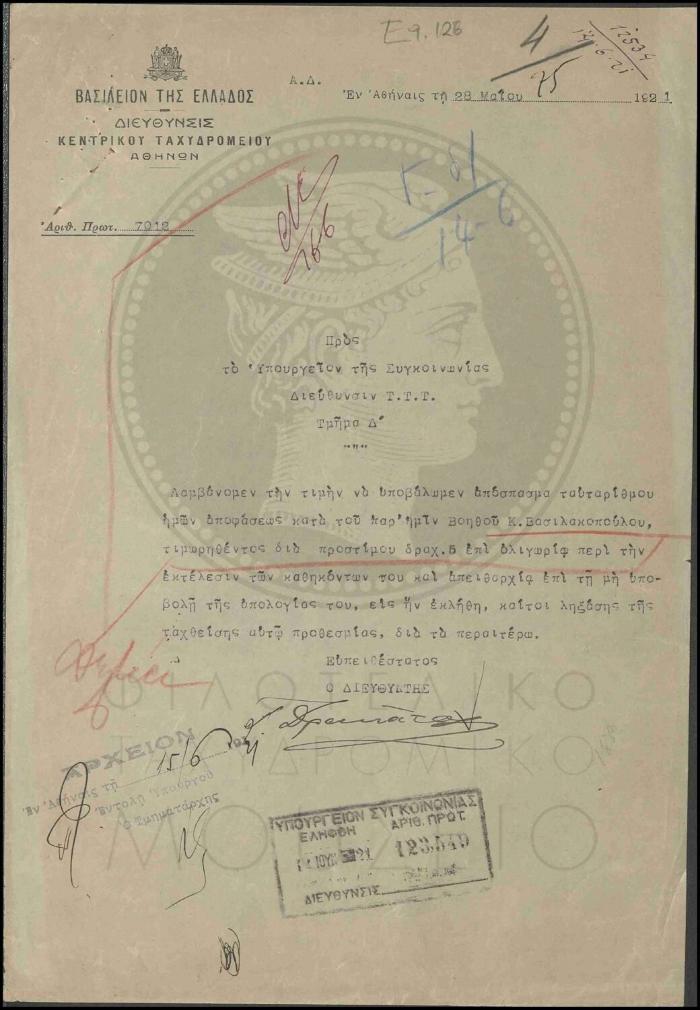 Εφ. 126
4
75
12534
14-6-21
ΒΑΣΙΛΕΙΟΝ ΤΗΣ ΕΛΛΑΔΟΣ
Α.Δ.
Ἐν Ἀθήναις τῇ 28 Μαΐου 1921
ΔΙΕΥΘΥΝΣΙΣ
ΚΕΝΤΡΙΚΟΥ ΤΑΧΥΔΡΟΜΕΙΟΥ
ΑΘΗΝΩΝ
14-6
766
Ἀριθ. Πρωτ. 7912
Πρὸς
τὸ Ὑπουργεῖον τῆς Συγκοινωνίας
Διεύθυνσιν Τ.Τ.Τ.
Τμῆμα Δ'
Λαμβάνομεν τὴν τιμὴν νὰ ὑποβάλωμεν ἀπόσπασμα ταὐταρίθμου
ἡμῶν ἀποφάσεως κατὰ τοῦ παρ'ἡμῖν Βοηθοῦ Κ.Βασιλακοπούλου,
τιμωρηθέντος διὰ προστίμου δραχ.5 ἐπὶ ὀλιγωρίᾳ περὶ τὴν
ἐκτέλεσιν τῶν καθηκόντων του καὶ ἀπειθαρχίᾳ ἐπὶ τῇ μὴ ὑπο-
βολῇ τῆς ἀπολογίας του, εἰς ἣν ἐκλήθη, καίτοι ληξάσης τῆς
ταχθείσης αὐτῷ προθεσμίας, διὰ τὰ περαιτέρω.
Εὐπειθέστατος
Ὁ ΔΙΕΥΘΥΝΤΗΣ
ΦΙΛΟΤΕΛΙΚΟ
ΤΑΧΥΔΡΟΜΙΚΟ
ΜΟΥΣΕΙΟ
ΑΡΧΕΙΟΝ
Ἐν Ἀθήναις τῇ 15/6 192
Ἐντολῇ Ὑπουργοῦ
Ὁ Τμηματάρχης
ΥΠΟΥΡΓΕΙΟΝ ΣΥΓΚΟΙΝΩΝΙΑΣ
ΕΛΗΦΘΗ ΑΡΙΘ. ΠΡΩΤ.
ΔΙΕΥΘΥΝΣΙΣ